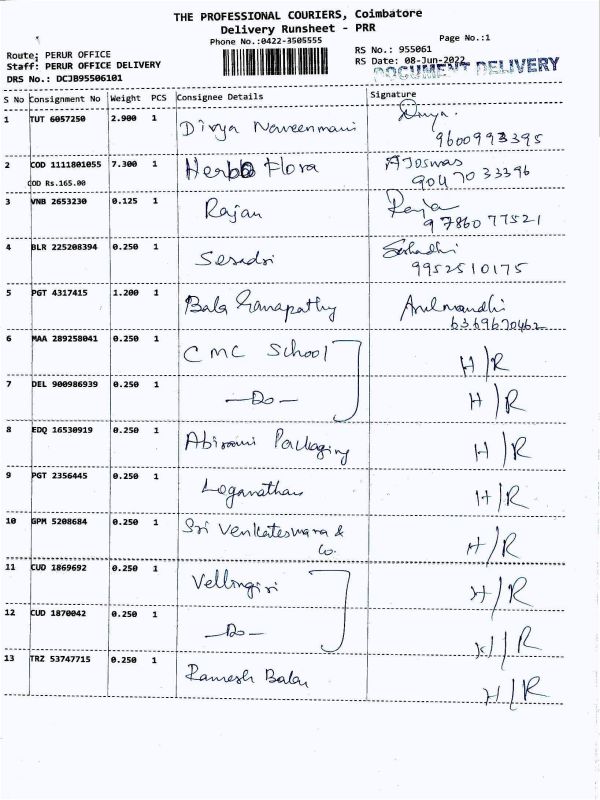 THE PROFESSIONAL COURIERS, Coimbatore
Delivery Runsheet - PRR
Phone No.:0422-3505555
Page No.:1
Route: PERUR OFFICE
RS No.: 955061
Staff: PERUR OFFICE DELIVERY
RS Date: 08-Jun-2022
DOCUMENT DELIVERY
DRS No.: DCJB95506101
S No Consignment No Weight PCS Consignee Details Signature
1 TUT 6057250 2.900 1 Divya Naveenmani Divya.
9600993395
2 COD 1111801055 7.300 1 Herbo Flora A Joswas
COD Rs.165.00 90470 33396
3 VNB 2653230 0.125 1 Rajan Raja
97860 77521
4 BLR 225208394 0.250 1 Sesadri Seshadhi
9952510175
5 PGT 4317415 1.200 1 Bala Ganapathy Arulnandhi
6369670462
6 MAA 289258041 0.250 1 CMC School H/R
7 DEL 900986939 0.250 1 —Do— H/R
8 EDQ 16530919 0.250 1 Abirami Packaging H/R
9 PGT 2356445 0.250 1 Loganathan H/R
10 GPM 5208684 0.250 1 Sri Venkateswara &
Co. H/R
11 CUD 1869692 0.250 1 Vellingiri H/R
12 CUD 1870042 0.250 1 —Do— H/R
13 TRZ 53747715 0.250 1 Ramesh Babu H/R